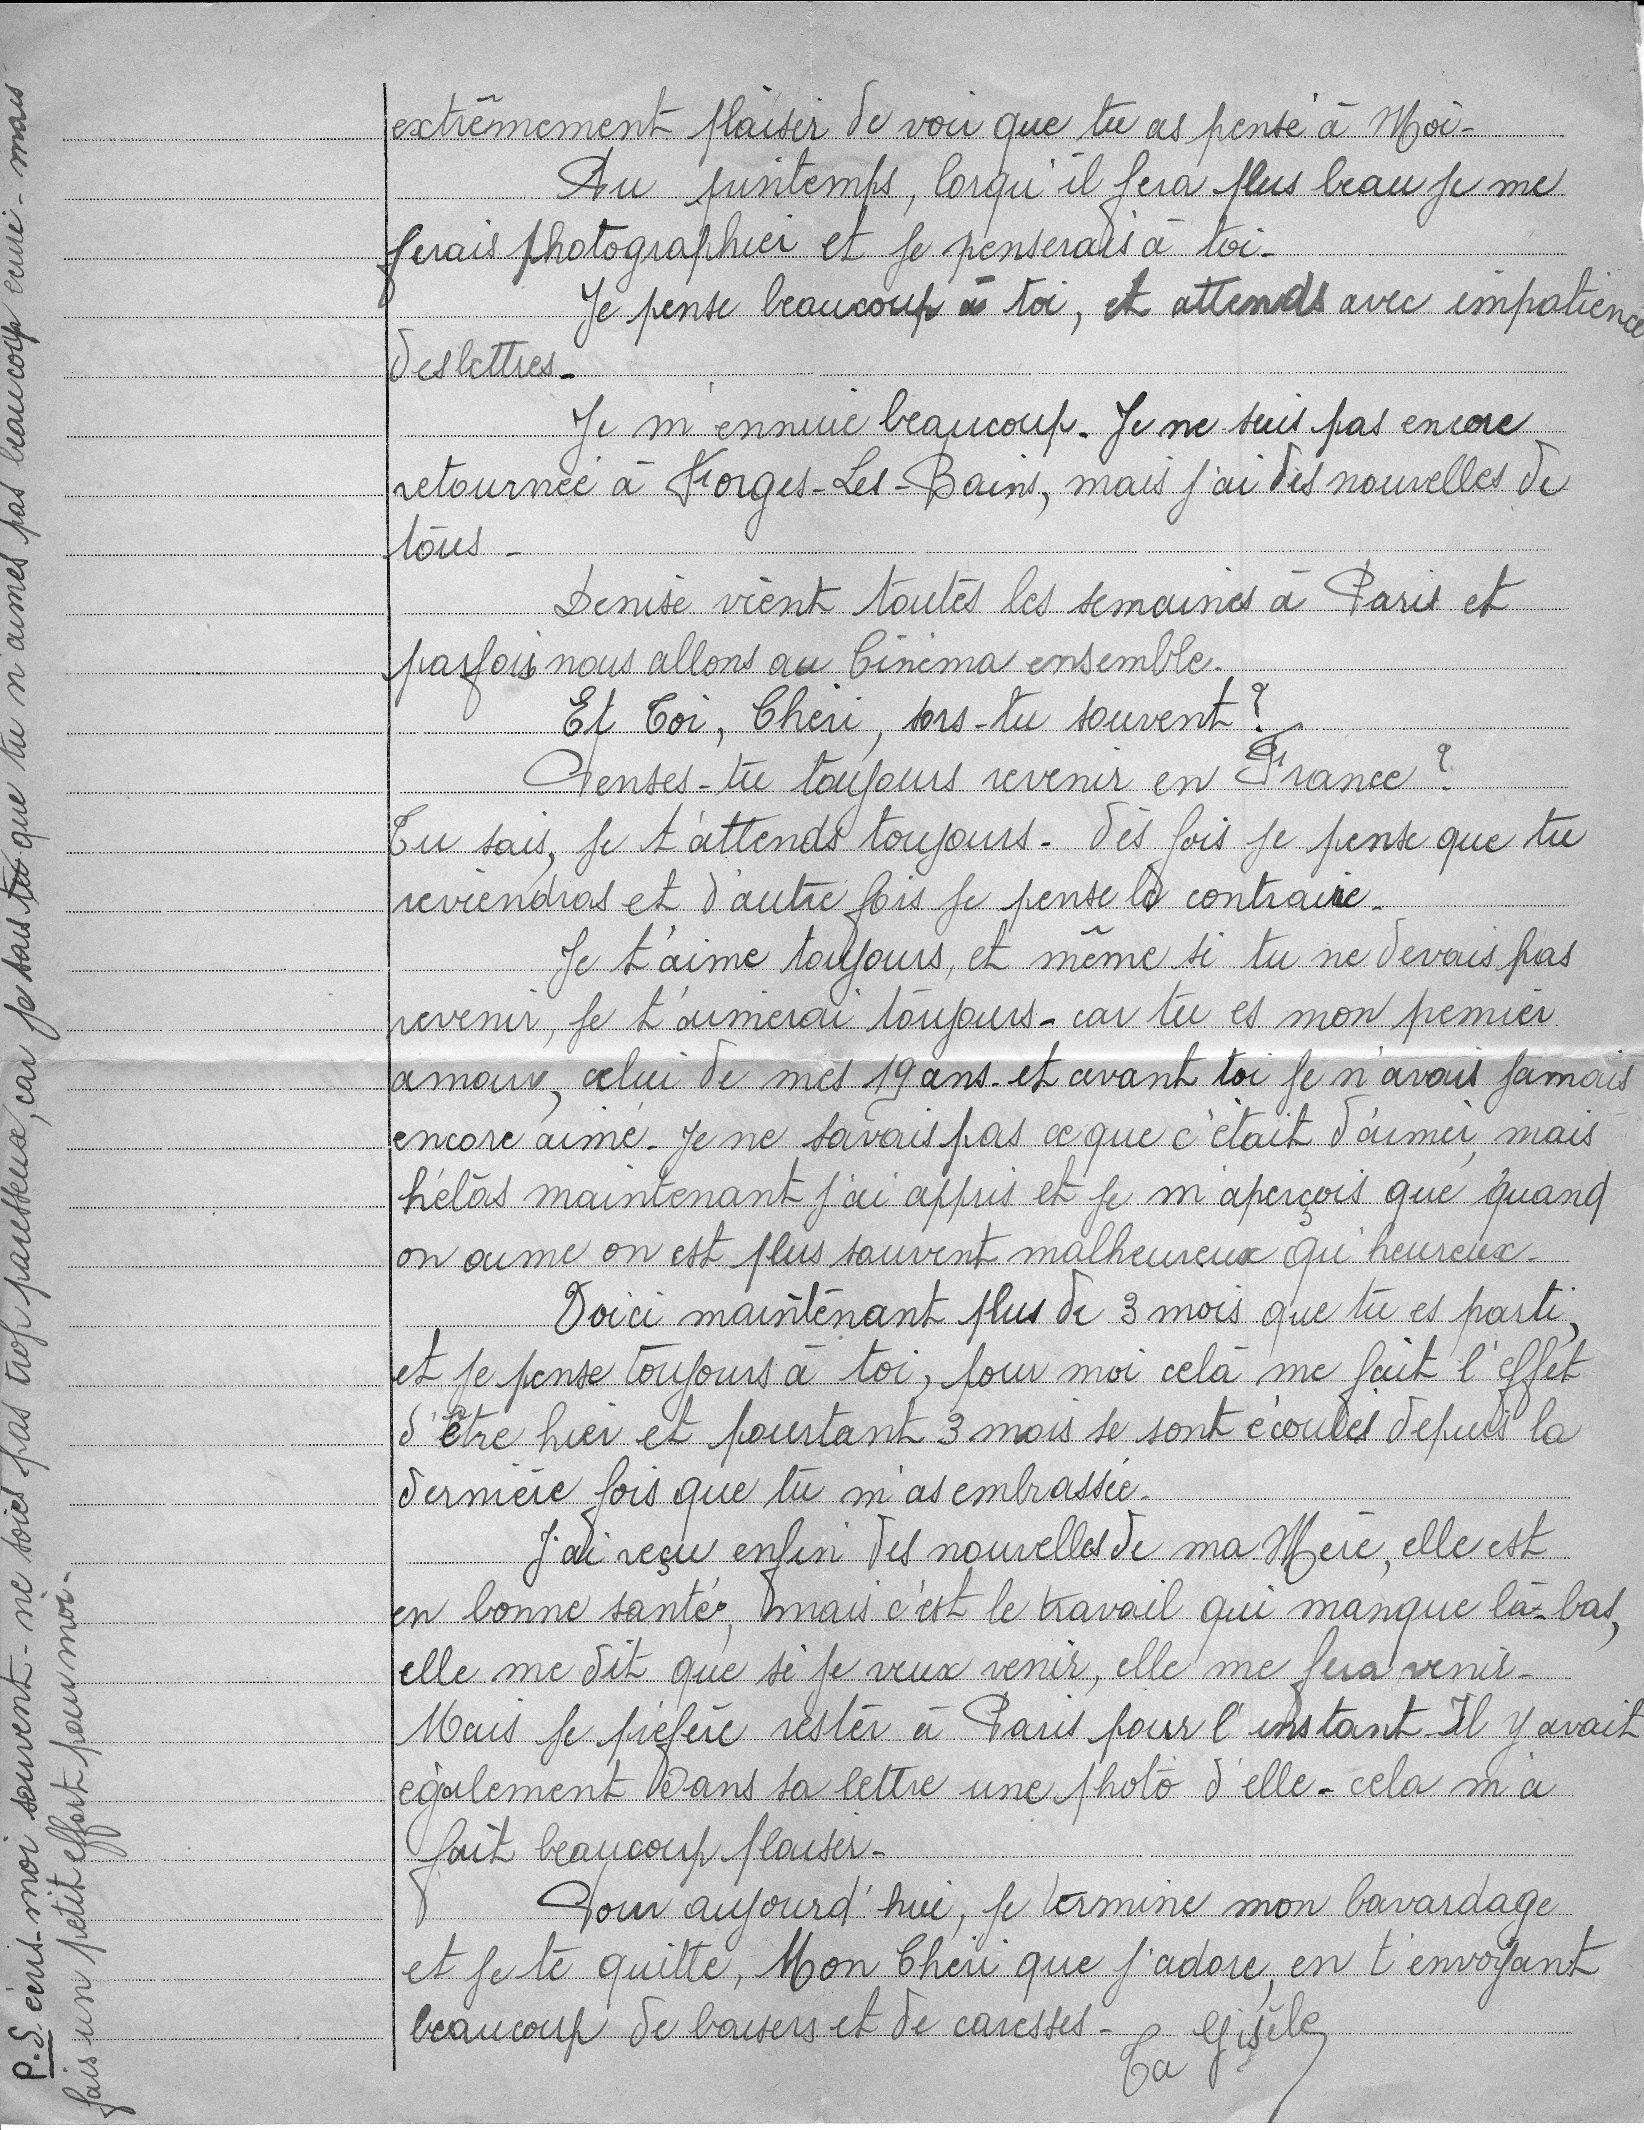 extrêmement plaisir de voir que tu as pensé à Moi-
Au printemps, lorqu'il fera plus beau je me
ferais photographier et je penserais à toi-
Je pense beaucoup à toi, et attends avec impatience
des lettres-
Je m'ennuie beaucoup. Je ne suis pas encore
retournée à Forges-Les-Bains, mais j'ai des nouvelles de
tous-
Denise vient toutes les semaines à Paris et
parfois nous allons au Cinéma ensemble.
Et Toi, Chéri, sors-tu souvent?
Penses-tu toujours revenir en France?
Tu sais, je t'attends toujours- des fois je pense que tu
reviendras et d'autre fois je pense le contraire-
Je t'aime toujours, et même si tu ne devais pas
revenir, je t'aimerai toujours- car tu es mon pemier
amour, celui de mes 19 ans- et avant toi je n'avais jamais
encore aimé- Je ne savais pas ce que c'était d'aimer, mais
hélas maintenant j'ai appris et je m'aperçois que quand
on aime on est plus souvent malheureux qu'heureux-
Voici maintenant plus de 3 mois que tu es parti,
et je pense toujours à toi, pour moi celà me fait l'effet
d'être hier et pourtant 3 mois se sont écoulés depuis la
dernière fois que tu m'as embrassée.
J'ai reçu enfin des nouvelles de ma Mère, elle est
en bonne santé, mais c'est le travail qui manque là-bas,
elle me dit que si je veux venir, elle me fera venir-
Mais je préfère rester à Paris pour l'instant- Il y avait
également dans sa lettre une photo d'elle- cela m'a
fait beaucoup plaisir-
Pour aujourd'hui, je termine mon bavardage
et je te quitte, Mon Chéri que j'adore, en t'envoyant
beaucoup de baisers et de caresses-
Ta Gisèle
P.S. écris-moi souvent- ne soies pas trop paresseux, car je sais tu que tu n'aimes pas beaucoup écrire- mais
fais un petit effort pour moi-